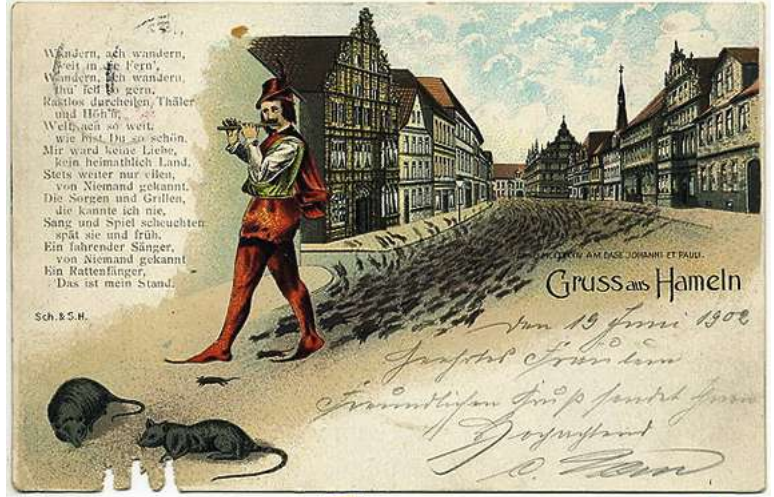 Wandern, ach wandern,
Weit in die Fern',
Wandern, ach wandern,
thu' ich so gern,
Rastlos durcheilen, Thäler
und Höh'n,
Welt, ach so weit,
wie bist Du so schön.
Mir ward keine Liebe,
kein heimathlich Land,
Stets weiter nur eilen,
von Niemand gekannt.
Die Sorgen und Grillen,
die kannte ich nie,
Sang und Spiel scheuchten
spät sie und früh.
Ein fahrender Sänger,
von Niemand gekannt
Ein Rattenfänger,
Das ist mein Stand.
Sch. & S. H.
AM DAGE JOHANNI ET PAULI.
Gruss aus Hameln
den 19 Juni 1902
Geehrtes Fräulein
Freundlichen Gruß sendet Ihnen
Hochachtend